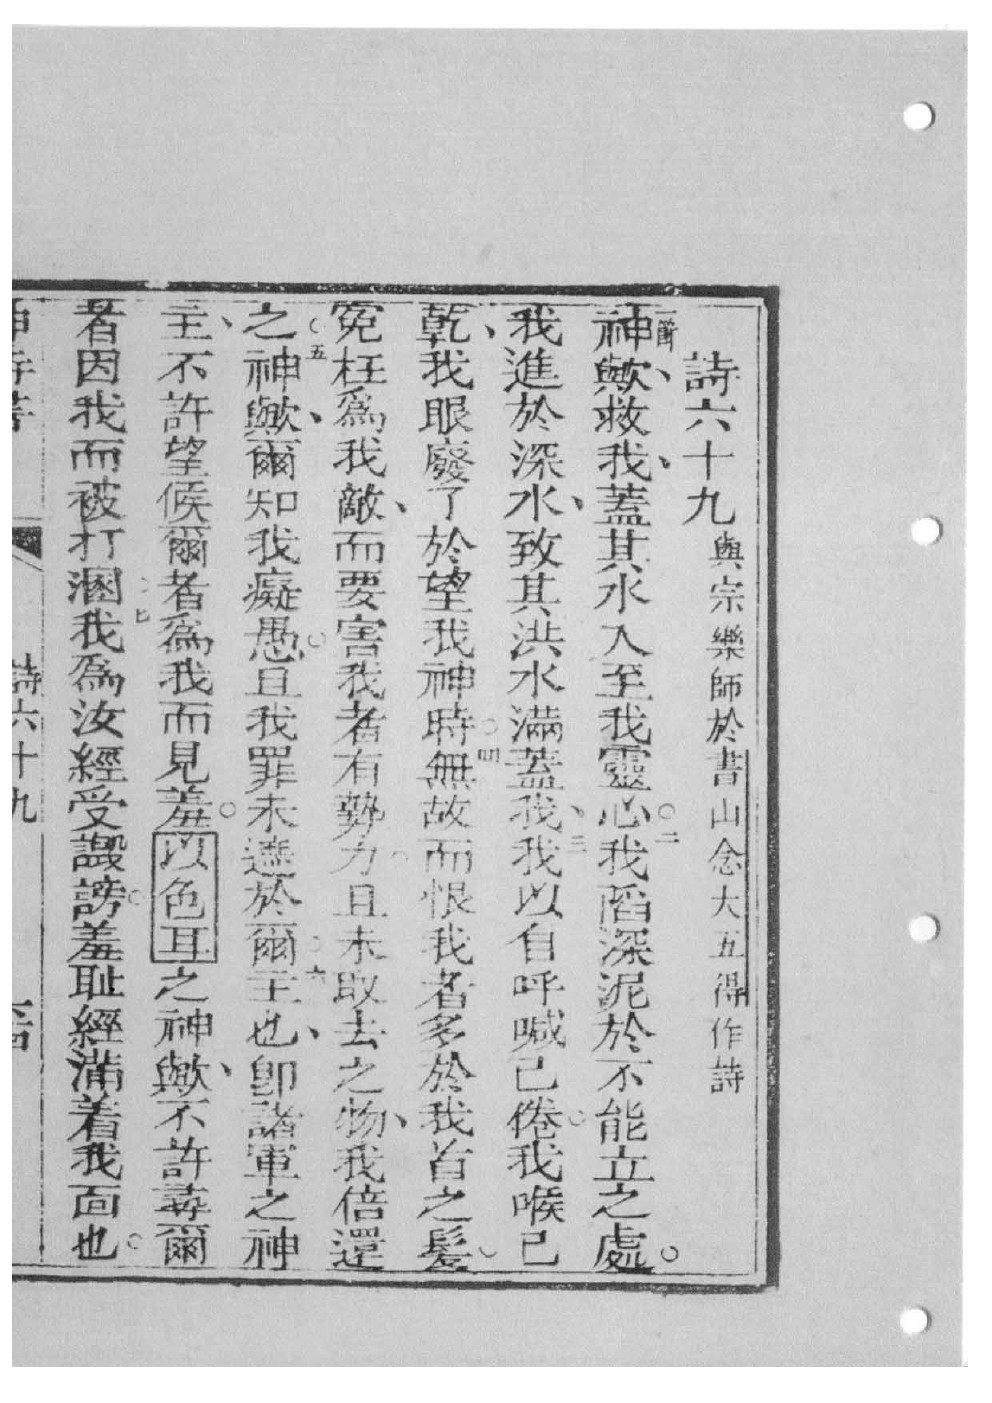 詩六十九 與宗樂師於書山念大五得作詩
一節神歟、救我、蓋其水入至我靈心。二我陷深泥於不能立之處。
我進於深水、致其洪水滿蓋我、三我以自呼喊己倦。我喉己
乾、我眼廢了於望我神時。四無故而恨我者多於我首之髮。
冤枉爲我敵、而要害我者有勢力。且未取去之物、我倍還
之。五神歟、爾知我癡愚。且我罪未遮於爾。六主也、卽諸軍之神
主、不許望候爾者爲我而見羞。以色耳之神歟、不許尋爾
者因我而被打溷。七我爲汝經受譭謗。羞耻經滿着我面也。
詩六十九